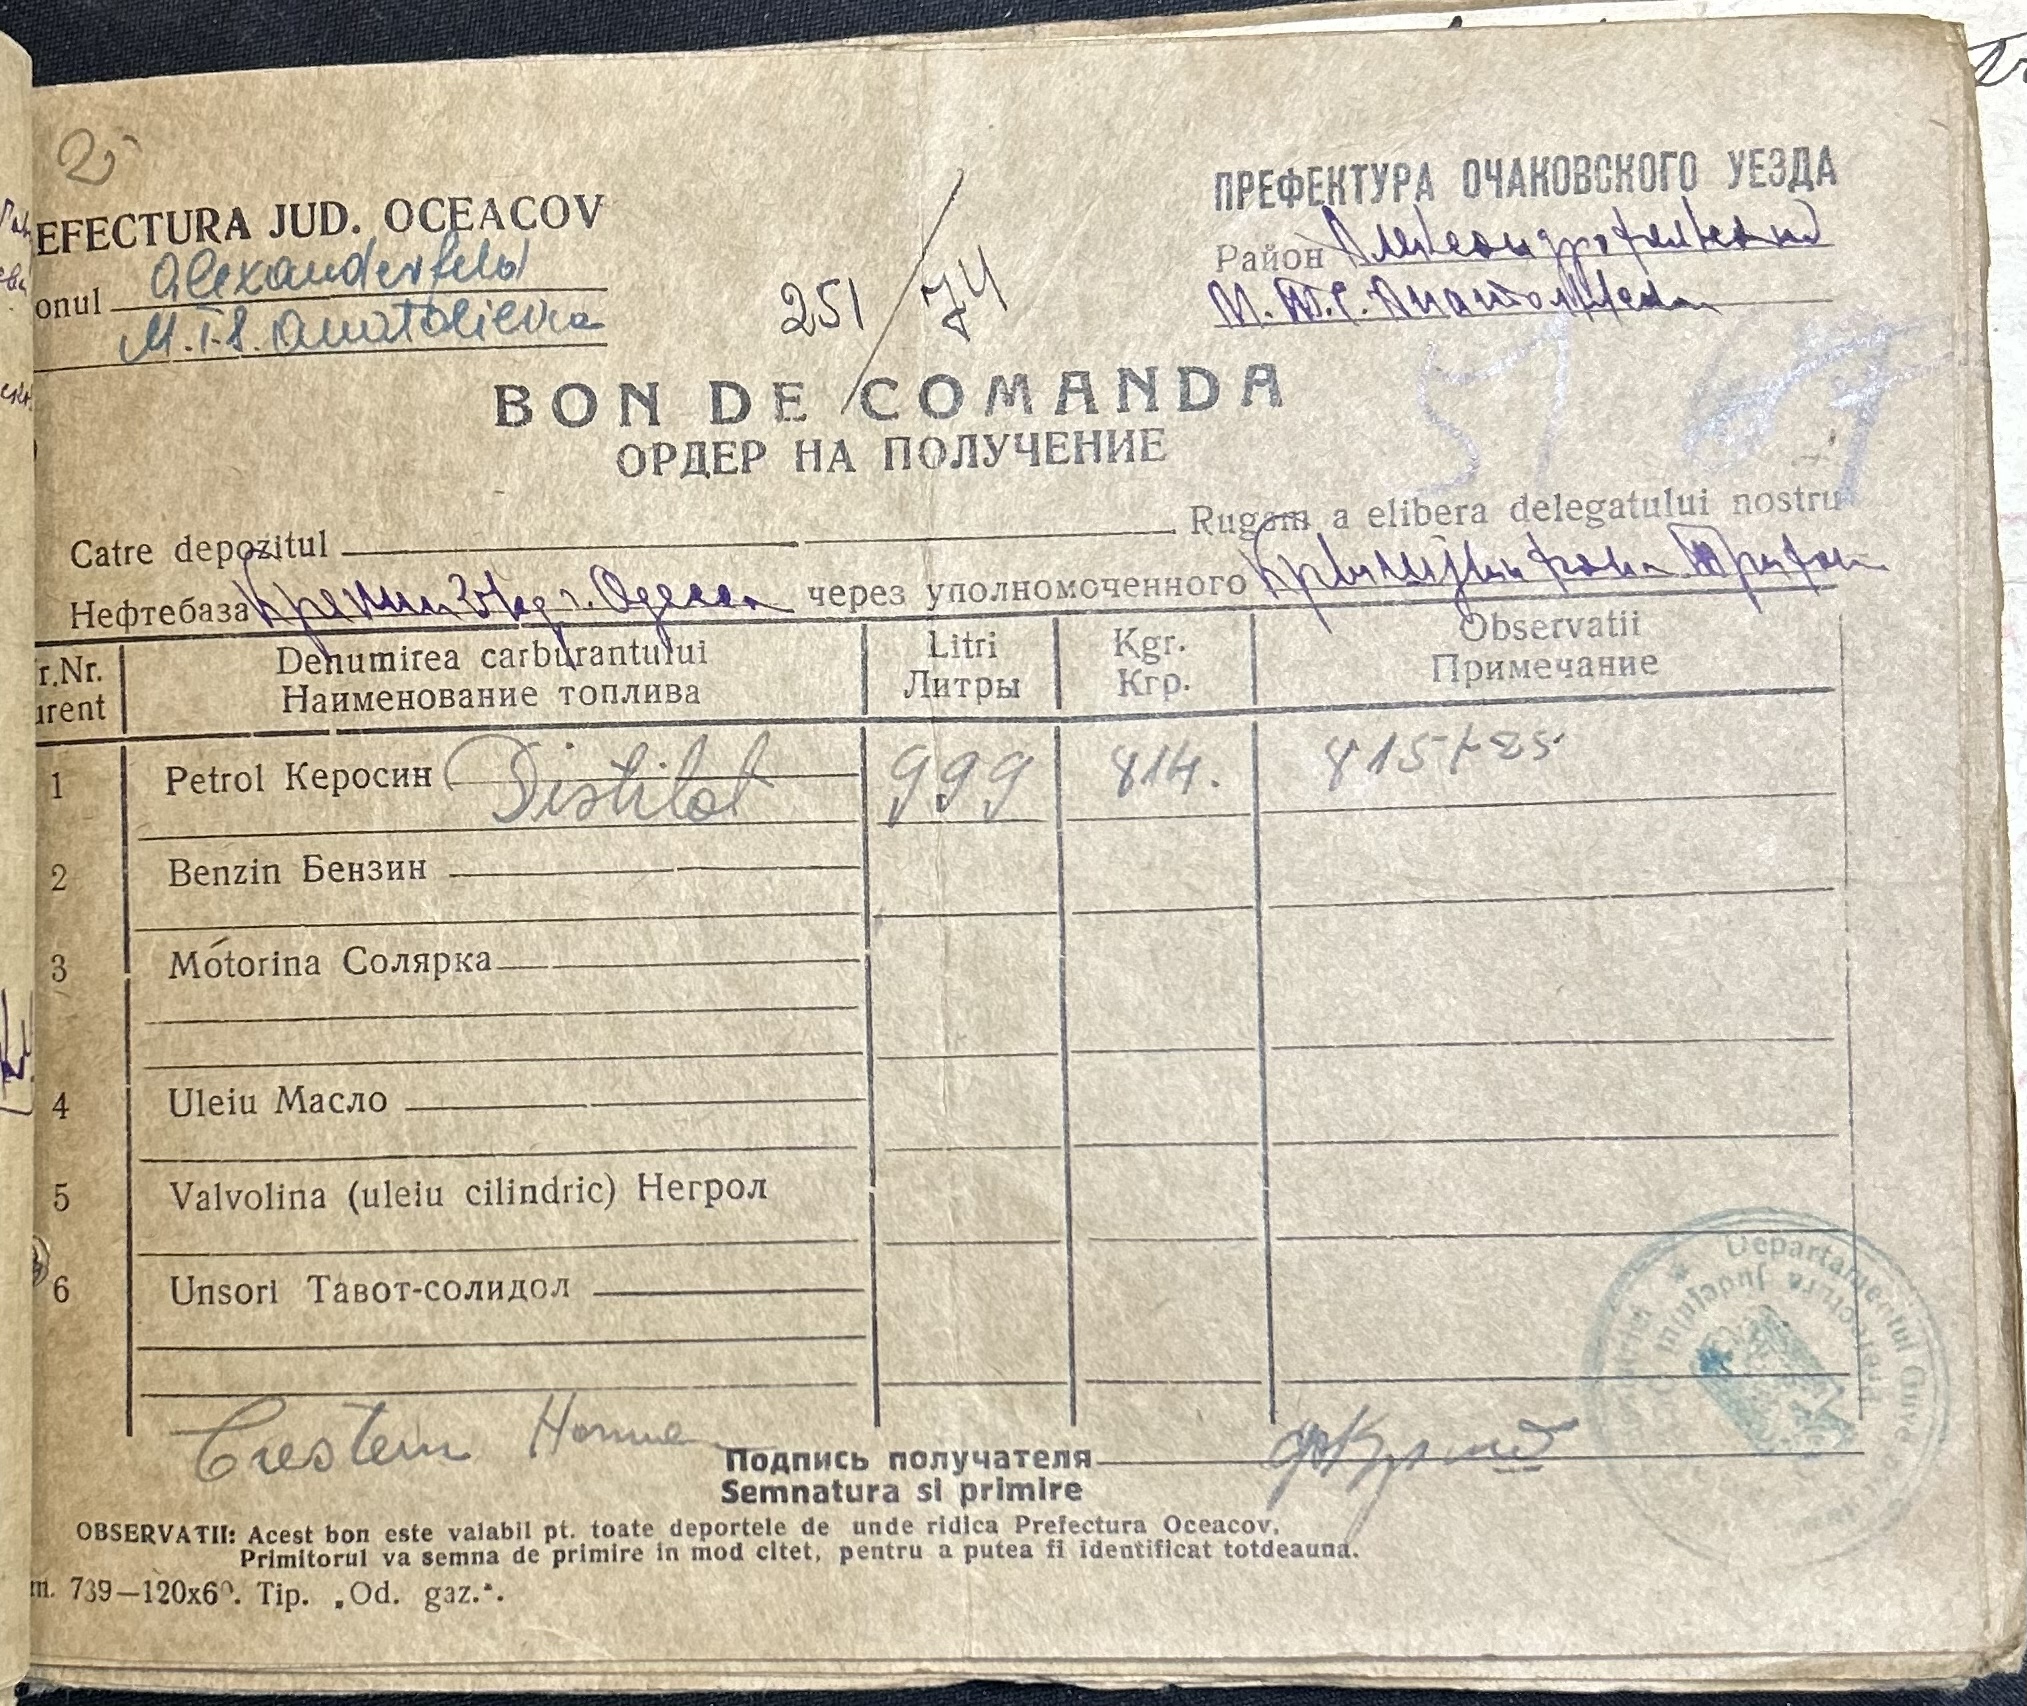 EFECTURA JUD. OCEACOV
ПРЕФЕКТУРА ОЧАКОВСКОГО УЕЗДА
onul Alexanderfeld
Район
M.T.S. Anatolievca
М.Т.С. Анатольевка
251/74
BON DE COMANDA
ОРДЕР НА ПОЛУЧЕНИЕ
Catre depozitul Rugam a elibera delegatului nostru
Нефтебаза г. Одесса через уполномоченного
r.Nr. Denumirea carburantului Litri Kgr. Observatii
urent Наименование топлива Литры Кгр. Примечание
1 Petrol Керосин Distilat 999 814.
2 Benzin Бензин
3 Motorina Солярка
4 Uleiu Масло
5 Valvolina (uleiu cilindric) Негрол
6 Unsori Тавот-солидол
Подпись получателя
Semnatura si primire
OBSERVATII: Acest bon este valabil pt. toate deportele de unde ridica Prefectura Oceacov.
Primitorul va semna de primire in mod citet, pentru a putea fi identificat totdeauna.
m. 739—120x60. Tip. „Od. gaz.".
Departamentul
Prefectura Judeţului